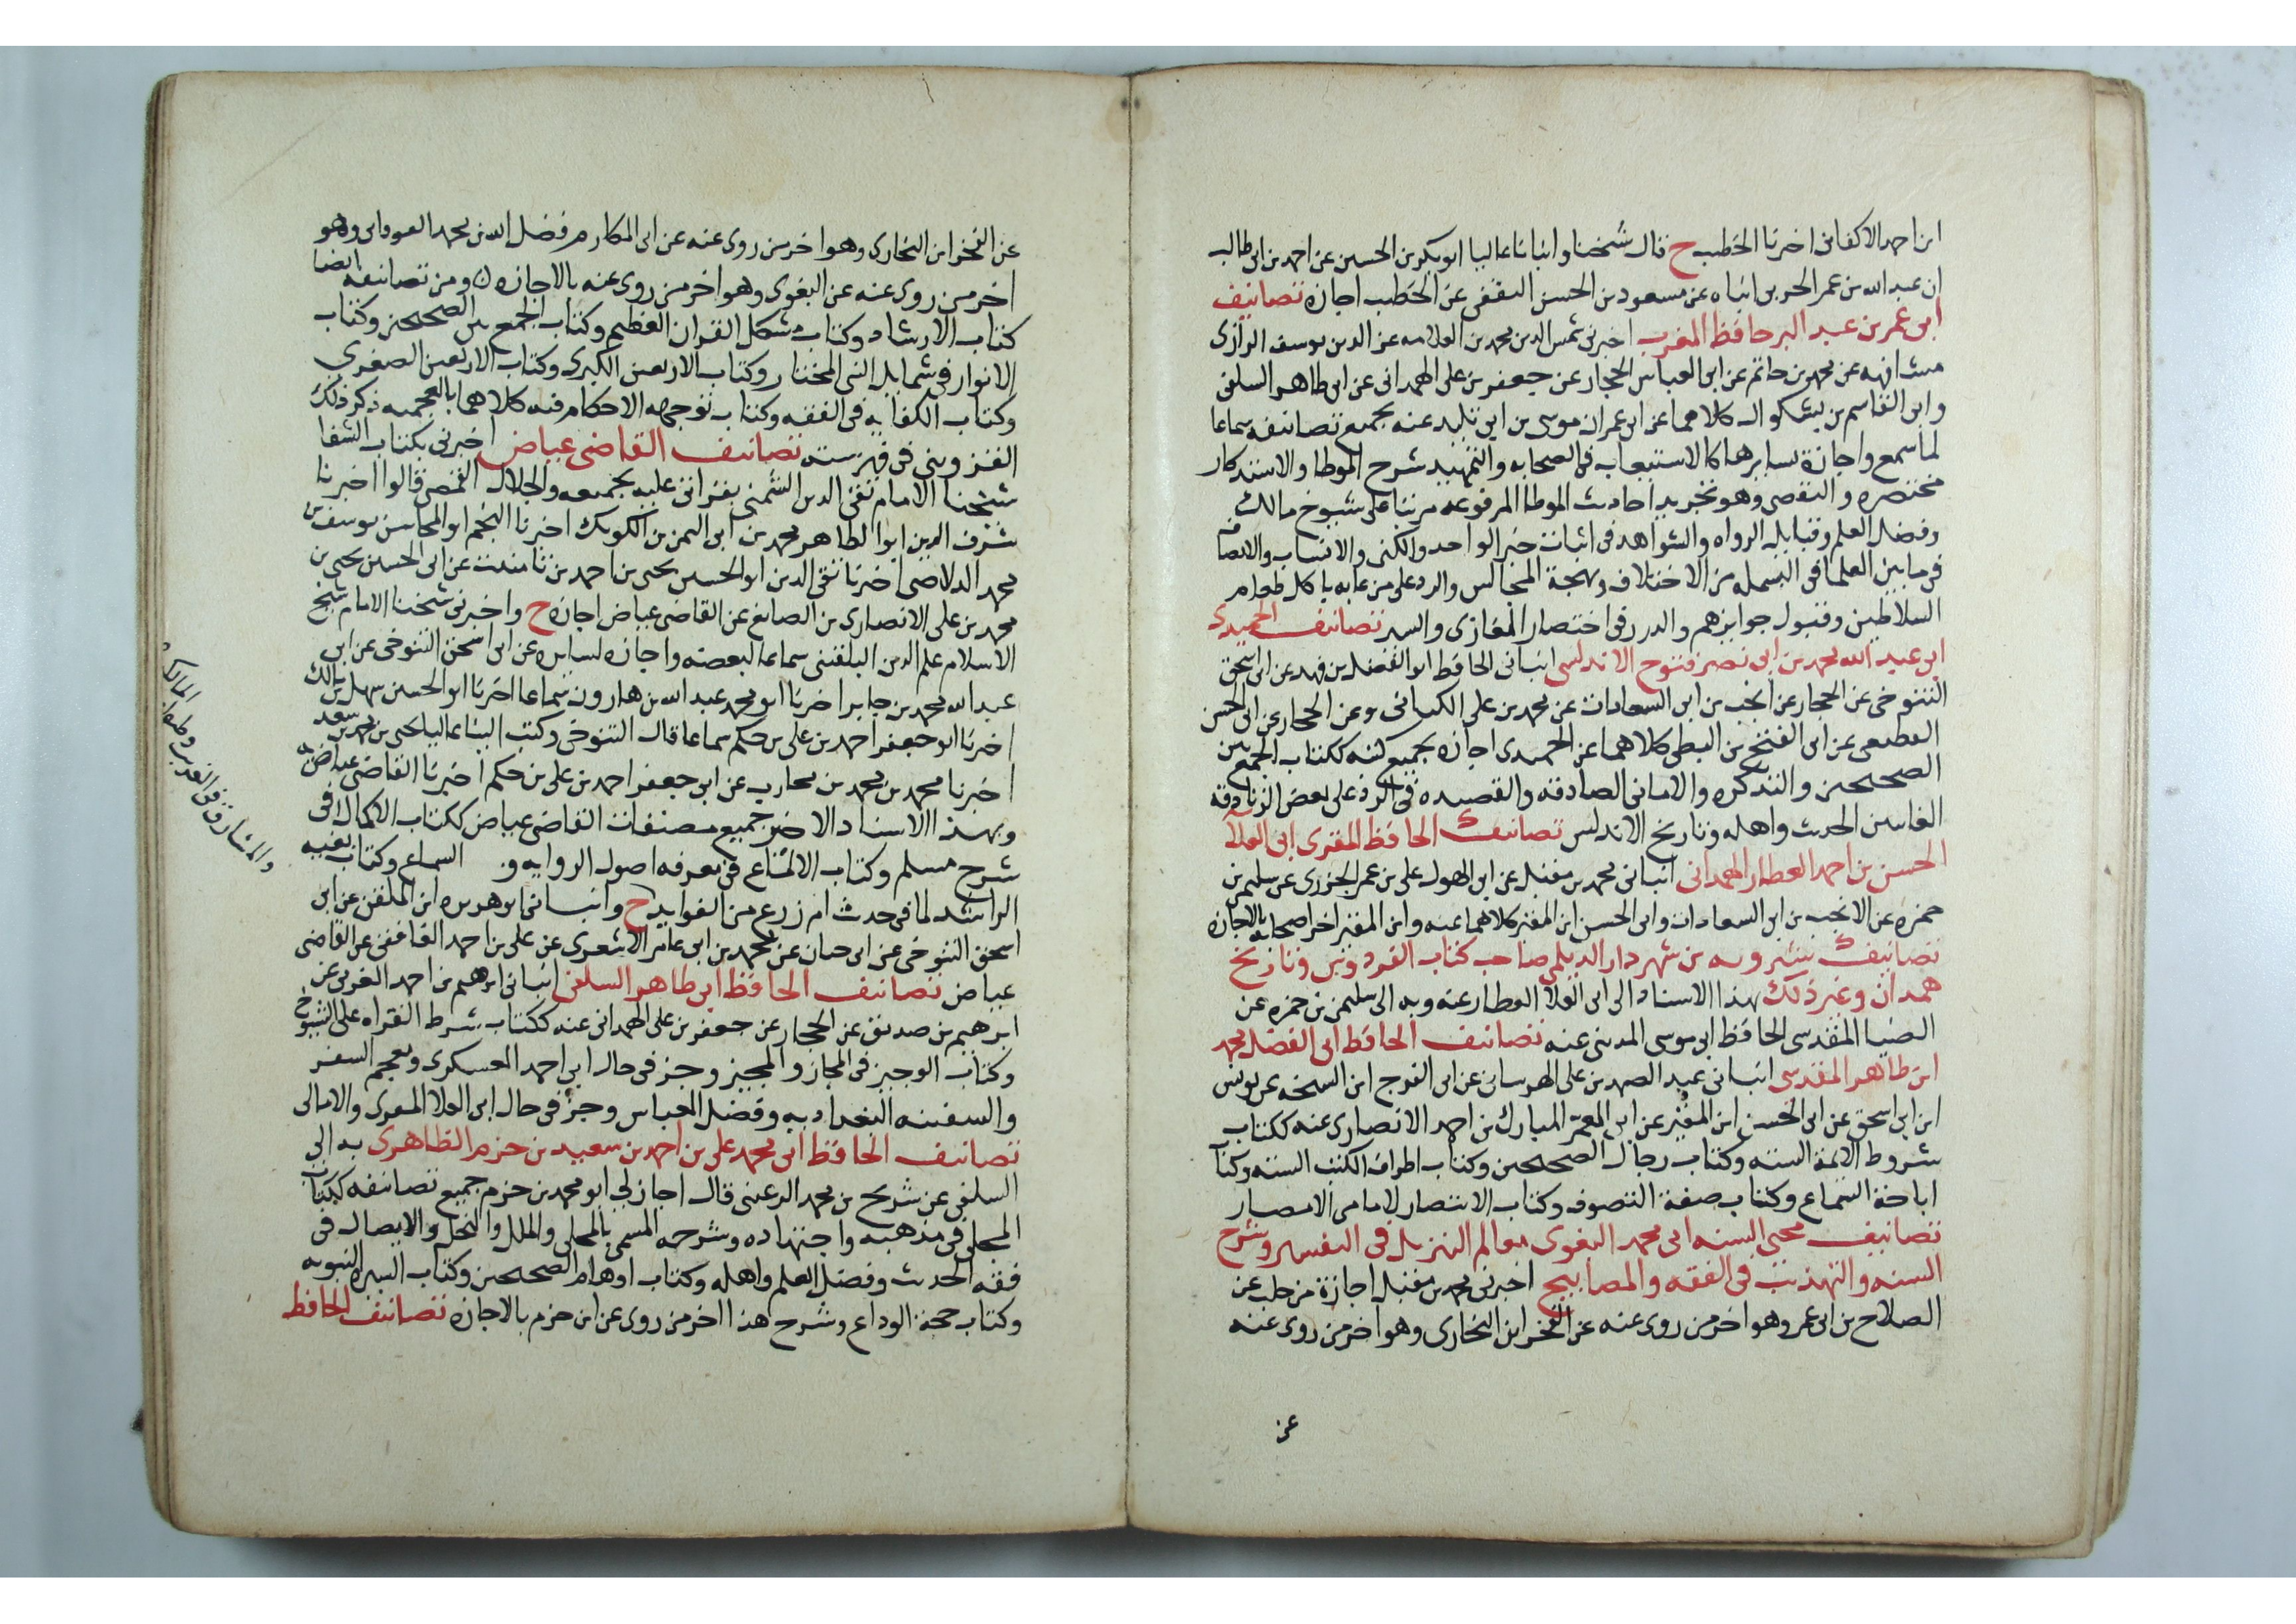 ابن احمد الاكفانى اخبرنا الخطيب ح قال شيخنا وانبانا عاليا ابو بكر بن الحسين عن احمد بن ابى طالب
ان عبد الله بن عمر الحربى انباه عن مسعود بن الحسن الثقفى عن الخطيب اجازه تصانيف
ابى عمر بن عبد البر حافظ المغرب اخبرنى شمس الدين محمد بن العلامه عز الدين يوسف الرازى
مشافهه عن محمد بن حاتم عن ابى العباس الحجار عن جعفر بن على الهمدانى عن ابى طاهر السلفى
وابى القاسم بن بشكوال كلاهما عن ابى عمران موسى بن ابى تليد عنه بجميع تصانيفه سماعا
لما سمع واجازة لسايرها كالاستيعاب فى الصحابه والتمهيد شرح الموطا والاستذكار
مختصره والتقصى وهو تجريد احاديث الموطا المرفوعه مرتبا على شيوخ مالك
وفضل العلم وقبايل الرواه والشواهد فى اثبات خبر الواحد والكنى والانساب والانصاف
فى ما بين العلما فى البسمله من الاختلاف وبهجة المجالس والرد على من عابه باكل طعام
السلاطين وقبول جوايزهم والدرر فى اختصار المغازى والسير تصانيف الحميدى
ابى عبد الله محمد بن ابى نصر فتوح الاندلسى انبانى الحافظ ابو الفضل بن فهد عن ابى اسحق
التنوخى عن الحجار عن انجب بن ابى السعادات عن محمد بن على الكنانى وعن الحجار عن ابى الحسن
القطيعى عن ابى الفتح بن البطى كلاهما عن الحميدى اجازه بجميع كتبه ككتاب الجمع بين
الصحيحين والتذكره والامانى الصادقه والقصيده فى الرد على بعض الزنادقه
الغاسين الحديث واهله وتاريخ الاندلس تصانيف الحافظ المقرى ابى العلآ
الحسن بن احمد العطار الهمدانى انبانى محمد بن مقبل عن ابى الهول على بن عمر الجزرى عن سليمن بن
حمزه عن الانجب بن ابى السعادات وابى الحسن ابن المقير كلاهما عنه وابن المقير اخر اصحابه بالاجازه
تصانيف شيرويه بن شهردار الديلمى صاحب كتاب الفردوس وتاريخ
همدان وغير ذلك بهذا الاسناد الى ابى العلا العطار عنه وبه الى سليمن بن حمزه عن
الضيا المقدسى الحافظ ابى موسى المدينى عنه تصانيف الحافظ ابى الفضل محمد
ابن طاهر المقدسى انبانى عبد الصمد بن على الهرسانى عن ابى الفرج ابن الشيخه عن يونس
ابن ابى اسحق عن ابى الحسن ابن المقير عن ابى المعمر المبارك بن احمد الانصارى عنه ككتاب
شروط الائمة الستة وكتاب رجال الصحيحين وكتاب اطراف الكتب الستة وكتاب
اباحة السماع وكتاب صفة التصوف وكتاب الانتصار لامامى الامصار
تصانيف محيى السنه ابى محمد البغوى معالم التنزيل فى التفسير وشرح
السنه والتهذيب فى الفقه والمصابيح اخبرنى محمد بن مقبل اجازة من حلب عن
الصلاح بن ابى عمر وهو اخر من روى عنه عن الفخر ابن البخارى وهو اخر من روى عنه
عن
عن الفخر ابن البخارى وهو اخر من روى عنه عن ابى المكارم فضل الله بن محمد النوقانى وهو
اخر من روى عنه عن البغوى وهو اخر من روى عنه بالاجازه ومن تصانيفه ايضا
كتاب الارشاد وكتاب مشكل القران العظيم وكتاب الجمع بين الصحيحين وكتاب
الانوار فى شمايل النبى المختار وكتاب الاربعين الكبرى وكتاب الاربعين الصغرى
وكتاب الكفايه فى الفقه وكتاب توجيهه الاحكام فيه كلاهما بالعجميه ذكر ذلك
القزوينى فى فهرسته تصانيف القاضى عياض اخبرنى بكتاب الشفا
شيخنا الامام تقى الدين الشمنى بقراتى عليه بجميعه والجلال القمصى قالوا اخبرنا
شرف الدين ابو الطاهر محمد بن ابى اليمن بن الكويك اخبرنا النجم ابو المحاسن يوسف بن
محمد الدلاصى اخبرنا تقى الدين ابو الحسين يحيى بن احمد بن تامتيت عن ابى الحسين يحيى بن
محمد بن على الانصارى بن الصايغ عن القاضى عياض اجازه ح واخبرنى شيخنا الامام شيخ
الاسلام علم الدين البلقينى سماعا لبعضه واجازه لسايره عن ابى اسحق التنوخى عن ابى
عبد الله محمد بن جابر اخبرنا ابو محمد عبد الله بن هارون سماعا اخبرنا ابو الحسين سهل بن مالك
اخبرنا ابو جعفر احمد بن على بن حكم سماعا قال التنوخى وكتب الينا عاليا يحيى بن محمد بن سعد
اخبرنا محمد بن محمد بن محارب عن ابى جعفر احمد بن على بن حكم اخبرنا القاضى عياض
وبهذا الاسناد الاخير جميع مصنفات القاضى عياض ككتاب الاكمال فى
شرح مسلم وكتاب الالماع فى معرفه اصول الروايه و السماع وكتاب بغيه
الرايد لما فى حديث ام زرع من الفوايد ح وانبانى ابو هريره ابن الملقن عن ابى
اسحق التنوخى عن ابى حيان عن محمد بن ابى عامر الاشعرى عن على بن احمد الغافقى عن القاضى
عياض تصانيف الحافظ ابى طاهر السلفى انبانى ابرهيم بن احمد الغزى عن
ابرهيم بن صديق عن الحجار عن جعفر بن على الهمدانى عنه ككتاب شرط القراه على الشيوخ
وكتاب الوجيز فى المجاز والمجيز وجز فى حال ابى احمد العسكرى ومعجم السفر
والسفينه البغداديه وفضل العباس وجزؤ فى حال ابى العلا المعرى والامالى
تصانيف الحافظ ابى محمد على بن احمد بن سعيد بن حزم الظاهرى به الى
السلفى عن شريح بن محمد الرعينى قال اجاز لى ابو محمد بن حزم جميع تصانيفه ككتاب
المجلى فى مذهبه واجتهاده وشرحه المسمى بالمحلى والملل والنحل والايصال فى
فقه الحديث وفضل العلم واهله وكتاب اوهام الصحيحين وكتاب السيره النبويه
وكتاب حجة الوداع وشرح هذا اخر من روى عن ابن حزم بالاجازه تصانيف الحافظ
والمشارق فى الغريب وطبقات المالكيه